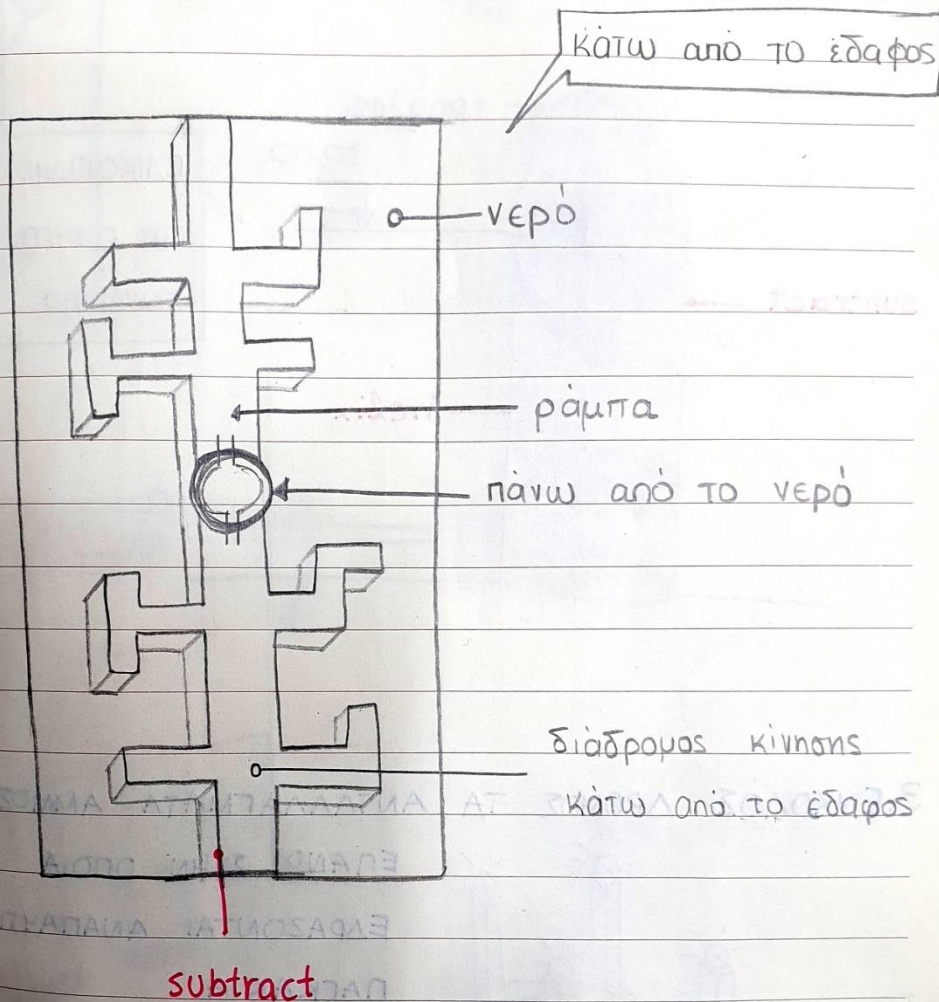 κάτω από το έδαφος
νερό
ράμπα
πάνω από το νερό
διάδρομος κίνησης
κάτω από το έδαφος
subtract